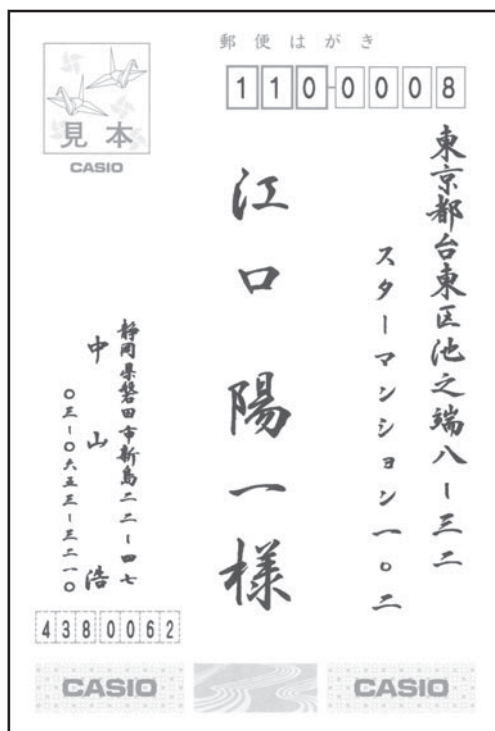 郵便はがき
110-0008
東京都台東区池之端八ー三二
スターマンション一〇二
江口陽一様
見本
CASIO
静岡県磐田市新島二二ー四七
中山浩
〇三ー〇六五三ー三二一〇
4380062
CASIO
CASIO